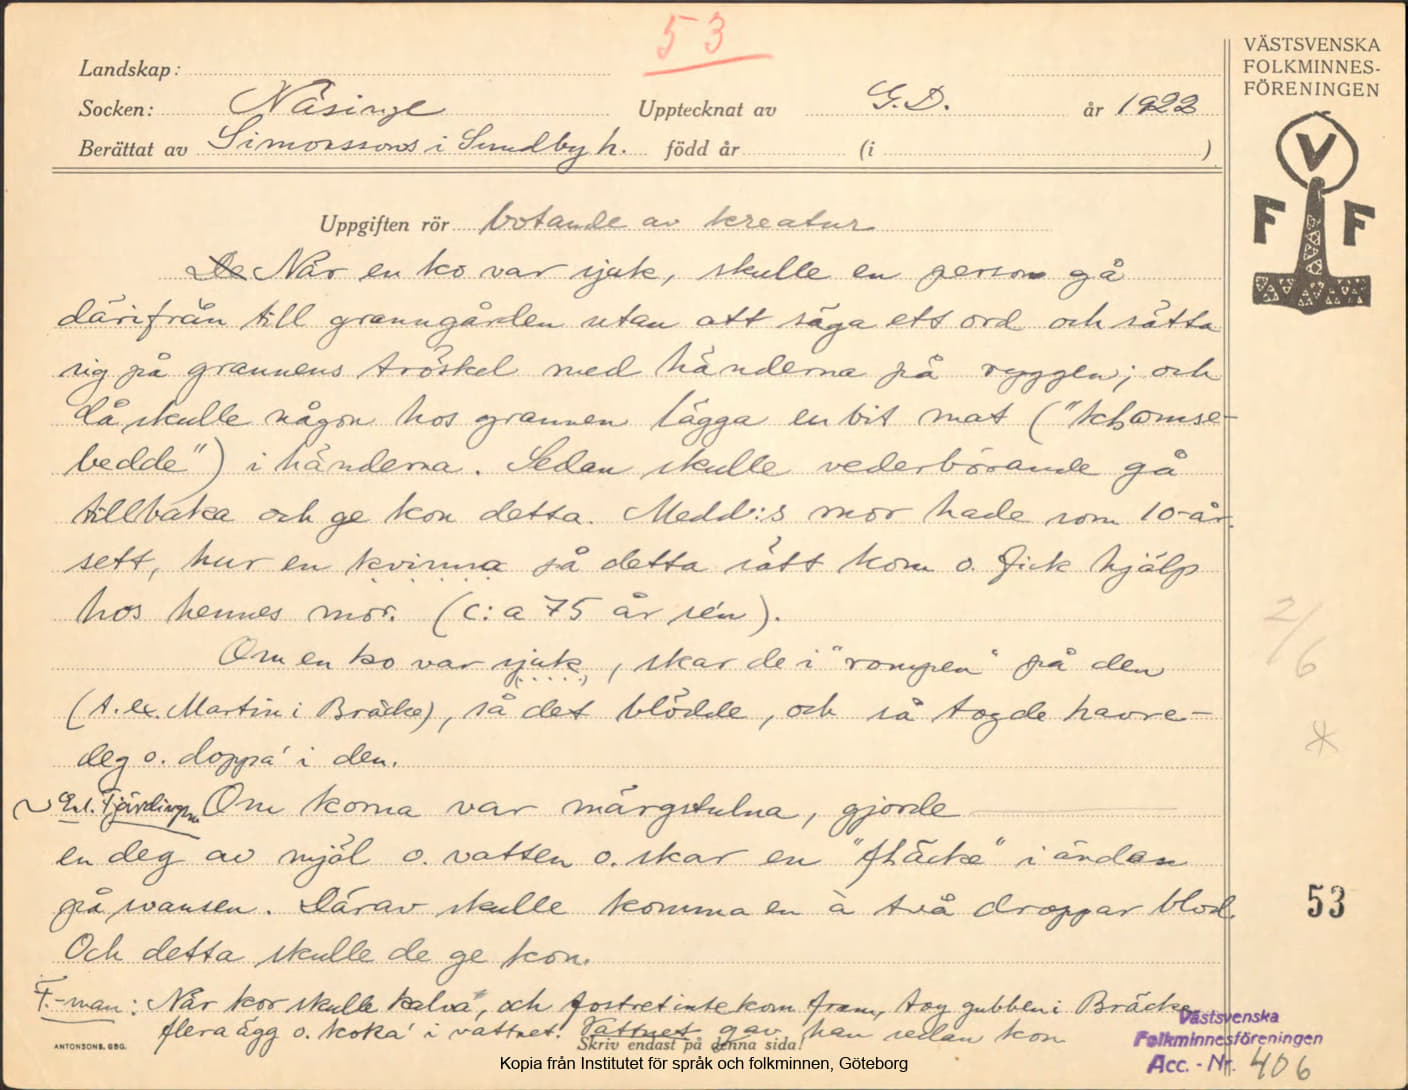 53
VÄSTSVENSKA
FOLKMINNES-
FÖRENINGEN
V
F F
Landskap:
Socken: Näsinge Upptecknat av G.D. år 1922
Berättat av Simonssons i Sundby h. född år (i )
Uppgiften rör botande av kreatur
De När en ko var sjuk, skulle en person gå
därifrån till granngården utan att säga ett ord och sätta
sig på grannens tröskel med händerna på ryggen; och
då skulle någon hos grannen lägga en bit mat ("
bedde") i händerna. Sedan skulle vederbörande gå
tillbaka och ge kon detta. Medd:s mor hade som 10-år.
sett, hur en kvinna på detta sätt kom o. fick hjälp
hos hennes mor. (c:a 75 år se'n).
Om en ko var sjuk, skar de i "rompen" på den
(t. ex. Martin i Bräcke), så det blödde, och så tog de havre-
deg o. doppa' i den.
Enl. Fjärdingsm. Om korna var märgstulna, gjorde
en deg av mjöl o. vatten o. skar en "fläcke" i ändan
på svansen. Därav skulle komma en à två droppar blod.
Och detta skulle de ge kon.
F.-man: När kor skulle kalva, och fostret inte kom fram, tog gubben i Bräcke
flera ägg o. koka' i vattnet. Vattnet gav han sedan kon
2/6
*
53
ANTONSONS, GBG.
Skriv endast på denna sida!
Västsvenska
Folkminnesföreningen
Acc. - Nr. 406
Kopia från Institutet för språk och folkminnen, Göteborg